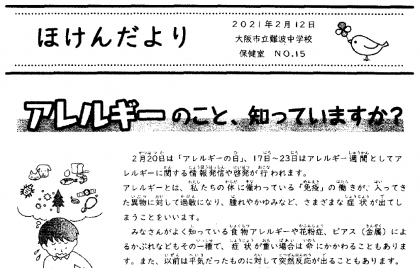 ほけんだより
2021年2月12日
大阪市立難波中学校
保健室 NO.15
アレルギーのこと、知っていますか?
2月20日は「アレルギーの日」、17日~23日はアレルギー週間としてア
レルギーに関する情報発信や啓発が行われます。
アレルギーとは、私たちの体に備わっている「免疫」の働きが、入ってき
た異物に対して過敏になり、腫れやかゆみなど、さまざまな症状が出てし
まうことをいいます。
みなさんがよく知っている食物アレルギーや花粉症、ピアス(金属)によ
るかぶれなどもその一種で、症状が重い場合は命にかかわることもありま
す。また、以前は平気だったものに対して突然反応が出ることもあります。